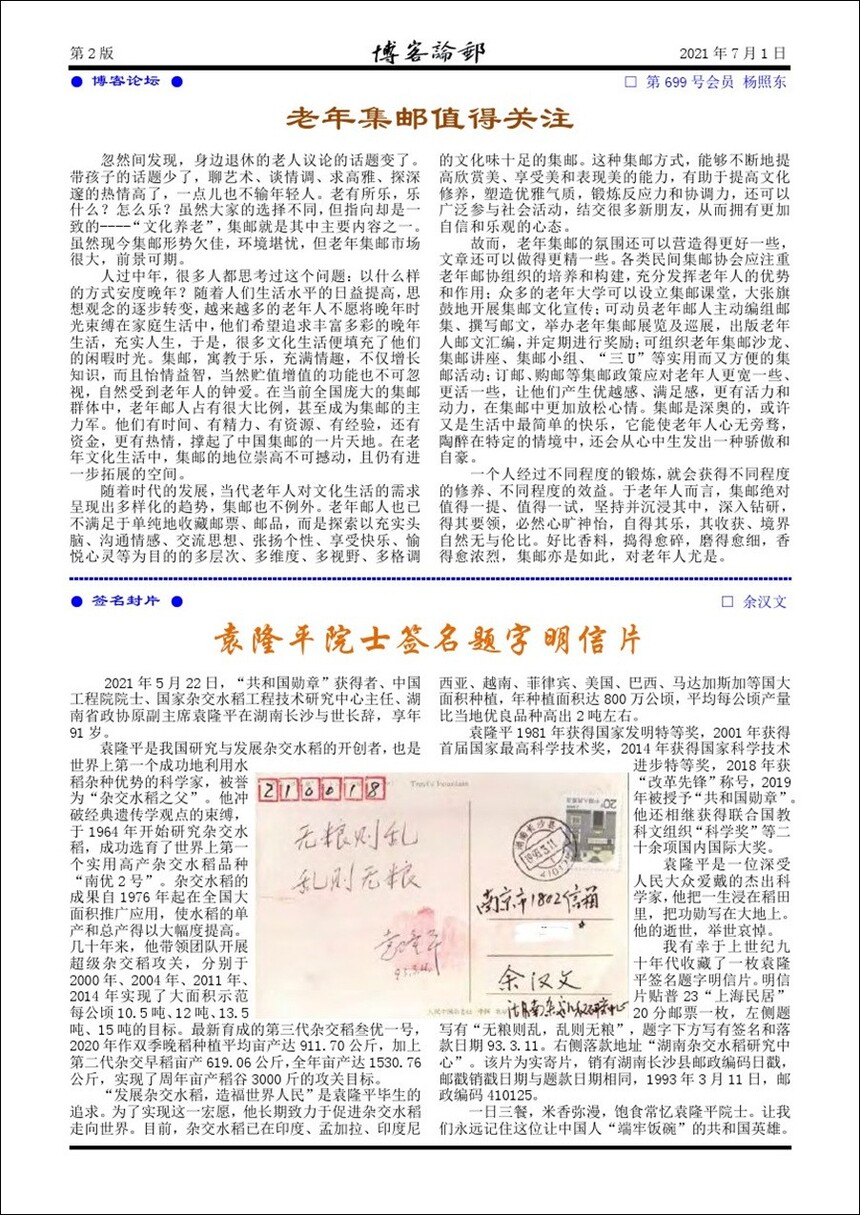 第 2 版
博客論郵
2021 年 7 月 1 日
● 博客论坛 ●
□ 第 699 号会员 杨照东
老年集邮值得关注
忽然间发现，身边退休的老人议论的话题变了。
带孩子的话题少了，聊艺术、谈情调、求高雅、探深
邃的热情高了，一点儿也不输年轻人。老有所乐，乐
什么？怎么乐？虽然大家的选择不同，但指向却是一
致的----“文化养老”，集邮就是其中主要内容之一。
虽然现今集邮形势欠佳，环境堪忧，但老年集邮市场
很大，前景可期。
人过中年，很多人都思考过这个问题：以什么样
的方式安度晚年？随着人们生活水平的日益提高，思
想观念的逐步转变，越来越多的老年人不愿将晚年时
光束缚在家庭生活中，他们希望追求丰富多彩的晚年
生活，充实人生，于是，很多文化生活便填充了他们
的闲暇时光。集邮，寓教于乐，充满情趣，不仅增长
知识，而且怡情益智，当然贮值增值的功能也不可忽
视，自然受到老年人的钟爱。在当前全国庞大的集邮
群体中，老年邮人占有很大比例，甚至成为集邮的主
力军。他们有时间、有精力、有资源、有经验，还有
资金，更有热情，撑起了中国集邮的一片天地。在老
年文化生活中，集邮的地位崇高不可撼动，且仍有进
一步拓展的空间。
随着时代的发展，当代老年人对文化生活的需求
呈现出多样化的趋势，集邮也不例外。老年邮人也已
不满足于单纯地收藏邮票、邮品，而是探索以充实头
脑、沟通情感、交流思想、张扬个性、享受快乐、愉
悦心灵等为目的的多层次、多维度、多视野、多格调
的文化味十足的集邮。这种集邮方式，能够不断地提
高欣赏美、享受美和表现美的能力，有助于提高文化
修养，塑造优雅气质，锻炼反应力和协调力，还可以
广泛参与社会活动，结交很多新朋友，从而拥有更加
自信和乐观的心态。
故而，老年集邮的氛围还可以营造得更好一些，
文章还可以做得更精一些。各类民间集邮协会应注重
老年邮协组织的培养和构建，充分发挥老年人的优势
和作用；众多的老年大学可以设立集邮课堂，大张旗
鼓地开展集邮文化宣传；可动员老年邮人主动编组邮
集、撰写邮文，举办老年集邮展览及巡展，出版老年
人邮文汇编，并定期进行奖励；可组织老年集邮沙龙、
集邮讲座、集邮小组、“三 U”等实用而又方便的集
邮活动；订邮、购邮等集邮政策应对老年人更宽一些、
更活一些，让他们产生优越感、满足感，更有活力和
动力，在集邮中更加放松心情。集邮是深奥的，或许
又是生活中最简单的快乐，它能使老年人心无旁骛，
陶醉在特定的情境中，还会从心中生发出一种骄傲和
自豪。
一个人经过不同程度的锻炼，就会获得不同程度
的修养、不同程度的效益。于老年人而言，集邮绝对
值得一提、值得一试，坚持并沉浸其中，深入钻研，
得其要领，必然心旷神怡，自得其乐，其收获、境界
自然无与伦比。好比香料，捣得愈碎，磨得愈细，香
得愈浓烈，集邮亦是如此，对老年人尤是。
● 签名封片 ●
□ 余汉文
袁隆平院士签名题字明信片
2021 年 5 月 22 日，“共和国勋章”获得者、中国
工程院院士、国家杂交水稻工程技术研究中心主任、湖
南省政协原副主席袁隆平在湖南长沙与世长辞，享年
91 岁。
袁隆平是我国研究与发展杂交水稻的开创者，也是
世界上第一个成功地利用水
稻杂种优势的科学家，被誉
为“杂交水稻之父”。他冲
破经典遗传学观点的束缚，
于 1964 年开始研究杂交水
稻，成功选育了世界上第一
个实用高产杂交水稻品种
“南优 2 号”。杂交水稻的
成果自 1976 年起在全国大
面积推广应用，使水稻的单
产和总产得以大幅度提高。
几十年来，他带领团队开展
超级杂交稻攻关，分别于
2000 年、2004 年、2011 年、
2014 年实现了大面积示范
每公顷 10.5 吨、12 吨、13.5
吨、15 吨的目标。最新育成的第三代杂交稻叁优一号，
2020 年作双季晚稻种植平均亩产达 911.70 公斤，加上
第二代杂交早稻亩产 619.06 公斤，全年亩产达 1530.76
公斤，实现了周年亩产稻谷 3000 斤的攻关目标。
“发展杂交水稻，造福世界人民”是袁隆平毕生的
追求。为了实现这一宏愿，他长期致力于促进杂交水稻
走向世界。目前，杂交水稻已在印度、孟加拉、印度尼
210018
无粮则乱
乱则无粮
袁隆平
93.3.11
20分
湖南长沙县
1993.3.11
南京市1802信箱
余汉文
西亚、越南、菲律宾、美国、巴西、马达加斯加等国大
面积种植，年种植面积达 800 万公顷，平均每公顷产量
比当地优良品种高出 2 吨左右。
袁隆平 1981 年获得国家发明特等奖，2001 年获得
首届国家最高科学技术奖，2014 年获得国家科学技术
进步特等奖，2018 年获
“改革先锋”称号，2019
年被授予“共和国勋章”。
他还相继获得联合国教
科文组织“科学奖”等二
十余项国内国际大奖。
袁隆平是一位深受
人民大众爱戴的杰出科
学家，他把一生浸在稻田
里，把功勋写在大地上。
他的逝世，举世哀悼。
我有幸于上世纪九
十年代收藏了一枚袁隆
平签名题字明信片。明信
片贴普 23“上海民居”
20 分邮票一枚，左侧题
写有“无粮则乱，乱则无粮”，题字下方写有签名和落
款日期 93.3.11。右侧落款地址“湖南杂交水稻研究中
心”。该片为实寄片，销有湖南长沙县邮政编码日戳，
邮戳销戳日期与题款日期相同，1993 年 3 月 11 日，邮
政编码 410125。
一日三餐，米香弥漫，饱食常忆袁隆平院士。让我
们永远记住这位让中国人“端牢饭碗”的共和国英雄。